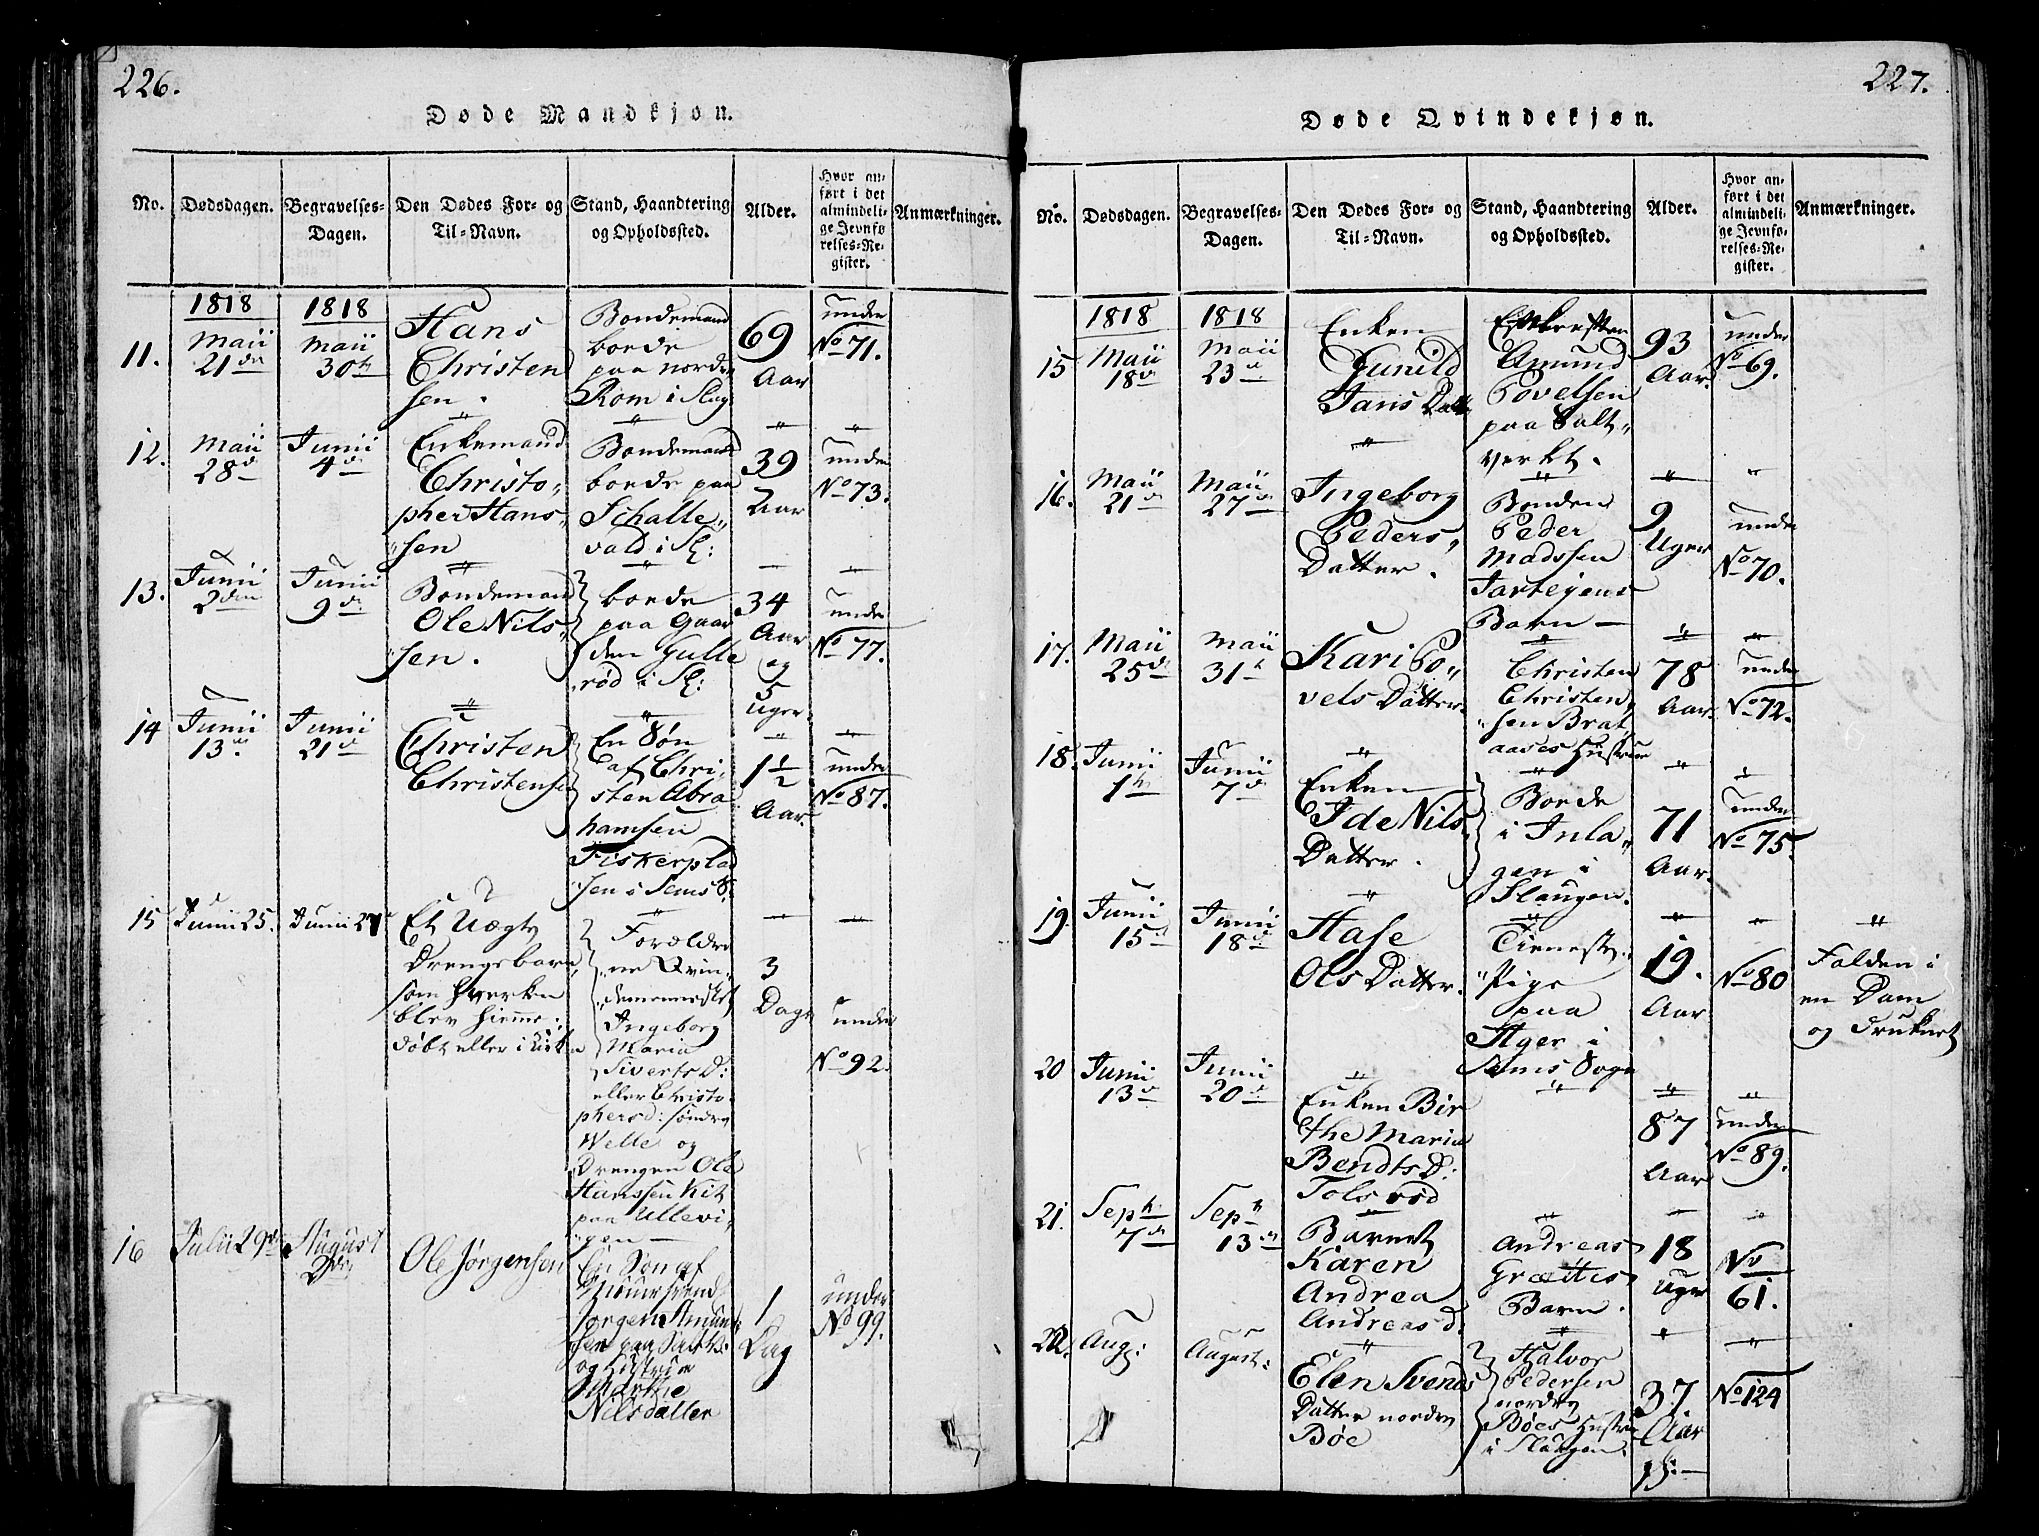 226.
Døde Mandkjøn.
No.
Dødsdagen.
Begravelses-
Dagen.
Den Dødes For- og
Til-Navn.
Stand, Haandtering
og Opholdssted.
Alder.
Hvor an-
ført i det
almindeli-
ge Jevnfø-
relses-Re-
gister.
Anmærkninger.
1818
1818
11.
Maii
21de
Maii
30te
Hans
Christen
sen.
Bondemand
boede
paa nordre
Rom i Slag
69
Aar
under
No 71.
12.
Maii
28d
Junii
4d
Enkemand
Christo-
pher Hans-
sen
Bondemand
boede paa
Schalle-
vald i Sl:
39
Aar
under
No 73.
13.
Junii
2den
Junii
9d
Bondemand
Ole Nils-
sen.
boede
paa Gaar
den Gulle
rød i Sl:
34
Aar
og
5
Uger.
under
No 77.
14
Junii
13d
Junii
21d
Christen
Christensen
En Søn
af Chri-
sten Abra
hamsen
Fiskerplad
sen i Sems S.
1 1/2
Aar.
under
No 87.
15
Junii 25.
Junii 27
Et Uægte
Drengebarn
som hverken
blev hieme-
døbt eller i Kirke
Forældre
ne Qvin-
demennisket
Ingeborg
Maria
Siverts D:
eller Christo-
phersd: søndre
Welle og
Drengen Ole
Hanssen Kit
paa Ullevi-
gen
3
Dage
under
No 92.
16
Julii 29de
August
2den
Ole Jørgensen
En Søn af
Jørgen Amund-
sen paa Saltv.
og Hustrue
Marthe
Nilsdatter
1
Dag
under
No 99.
227.
Døde Qvindekjøn.
No.
Dødsdagen.
Begravelses-
Dagen.
Den Dødes For- og
Til-Navn.
Stand, Haandtering
og Opholdssted.
Alder.
Hvor an-
ført i det
almindeli-
ge Jevnfø-
relses-Re-
gister.
Anmærkninger.
1818
1818
15
Maii
18d
Maii
23d
Enken
Gunild
Jans Datt
Efter
Amund
Povelsen
paa Salt-
verkt.
93
Aar.
under
No 69.
16.
Maii
21d
Maii
27d
Ingeborg
Peders-
Datter.
Bonden
Peder
Madssen
Jartejens
Barn
9
Uger
under
No 70.
17.
Maii
25d
Maii
31t
Kari Po-
vels Datter.
Christen
Christen-
sen Brat
aases Hustrue
78
Aar.
under
No 72.
18.
Junii
1t
Junii
7d
Enken
Ide Nils
Datter.
Boede
i Inla-
gen i
Slaugen.
71
Aar.
under
No 75.
19.
Junii
15d
Junii
18d
Hase
Ols Datter.
Tieneste-
Pige
paa
Ager i
Sems Sogn
19.
Aar
No 80
Falden i
en Dam
og druknet
20
Junii
13d
Junii
20d
Enken Bir
the Maria
Bendts D:
Tolsrød
87
Aar
under
No 89.
21.
Sept
7d
Sept
13d
Barnet
Karen
Andrea
Andreas d:
Andreas
Grættes
Barn.
18
Uger
No
61.
22.
Aug:
August:
Elen Svends
Datter nordre
Bøe
Halvor
Pedersen
nordre
Bøes Hustrue
i Slaugen.
37
Aar
No 124